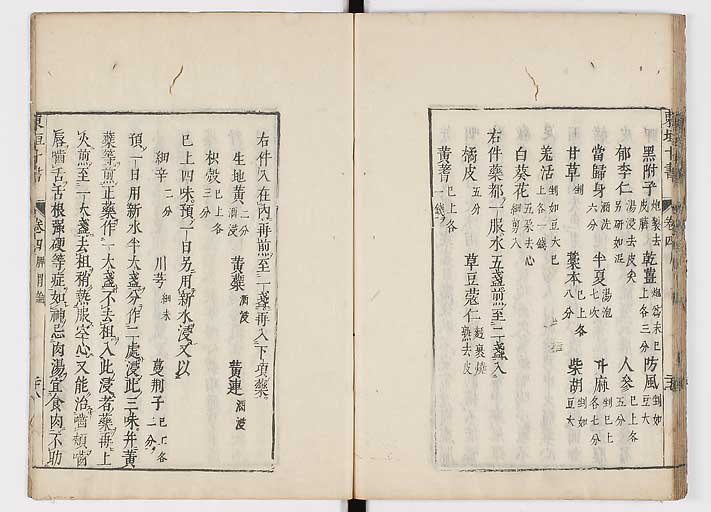 東垣十書
卷四
黑附子 炮製去皮臍 乾薑 上各三分 防風 剉如豆大
郁李仁 湯浸去皮尖另研如泥 人參 已上各五分
當歸身 酒洗六分 半夏 湯泡七次 升麻 剉已上各七分
甘草 剉 藁本 已上各八分 柴胡 剉如豆大
羗活 剉如豆大已上各一錢
白葵花 五朵去心細剪入
右件藥都一服水五盞煎至二盞入
橘皮 五分 草豆蔻仁 麪裹燒熟去皮
黃蓍 已上各一錢
右件入在內再煎至一盞再入下項藥
生地黃 二分酒浸 黃蘗 酒浸 黃連 酒浸
枳殼 已上各三分
已上四味預一日另用新水浸又以
細辛 二分 川芎 細末 蔓荆子 已上各二分
預一日用新水半大盞分作二處浸此三味并黃
蘗等煎正藥作一大盞不去柤入此浸者藥再上
火煎至一大盞去柤稍熱服空心又能治嚙頰嚙
唇嚙舌舌根强硬等症如神忌肉湯宜食肉不助
東垣十書
卷四